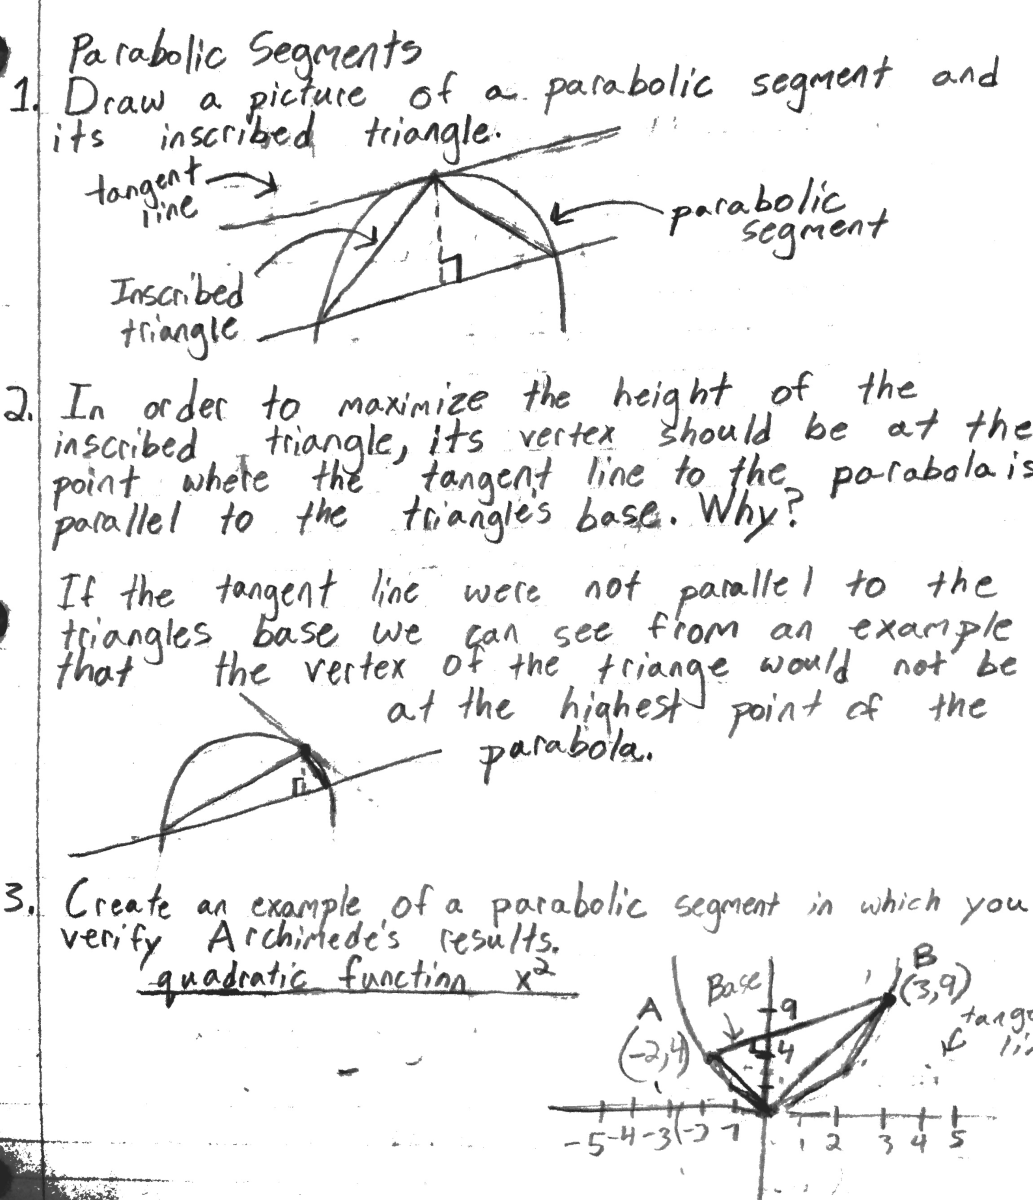 Parabolic Segments
1. Draw a picture of a parabolic segment and
its inscribed triangle.
tangent
line
parabolic
segment
Inscribed
triangle
2. In order to maximize the height of the
inscribed triangle, its vertex should be at the
point where the tangent line to the parabola is
parallel to the triangle's base. Why?
If the tangent line were not parallel to the
triangles base we can see from an example
that the vertex of the triange would not be
at the highest point of the
parabola.
3. Create an example of a parabolic segment in which you
verify Archimede's results.
quadratic function x²
B
(3,9)
Base
9
A
(-2,4)
4
-5 -4 -3 1 2 3 4 5